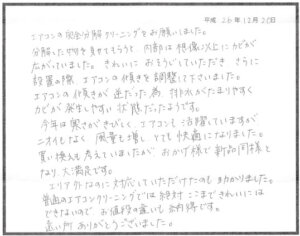 平成 26年12月20日
エアコンの完全分解クリーニングをお願いしました。
分解した物を見せてもらうと 内部は想像以上にカビが
広がっていました。きれいにおそうじしていただき さらに
設置の際 エアコンの傾きを調整して下さいました。
エアコンの傾きが逆だった為 排水がたまりやすく
カビが発生しやすい状態だったようです。
今年は寒さがきびしく エアコンも活躍していますが
ニオイもなく 風量も増し とても快適になりました。
買い換えも考えていましたが おかげ様で新品同様と
なり、大満足です。
エリア外なのに対応していただけたのも助かりました。
普通のエアコンクリーニングでは絶対 ここまできれいには
できないので お値段の違いも納得です。
遠い所 ありがとうございました。